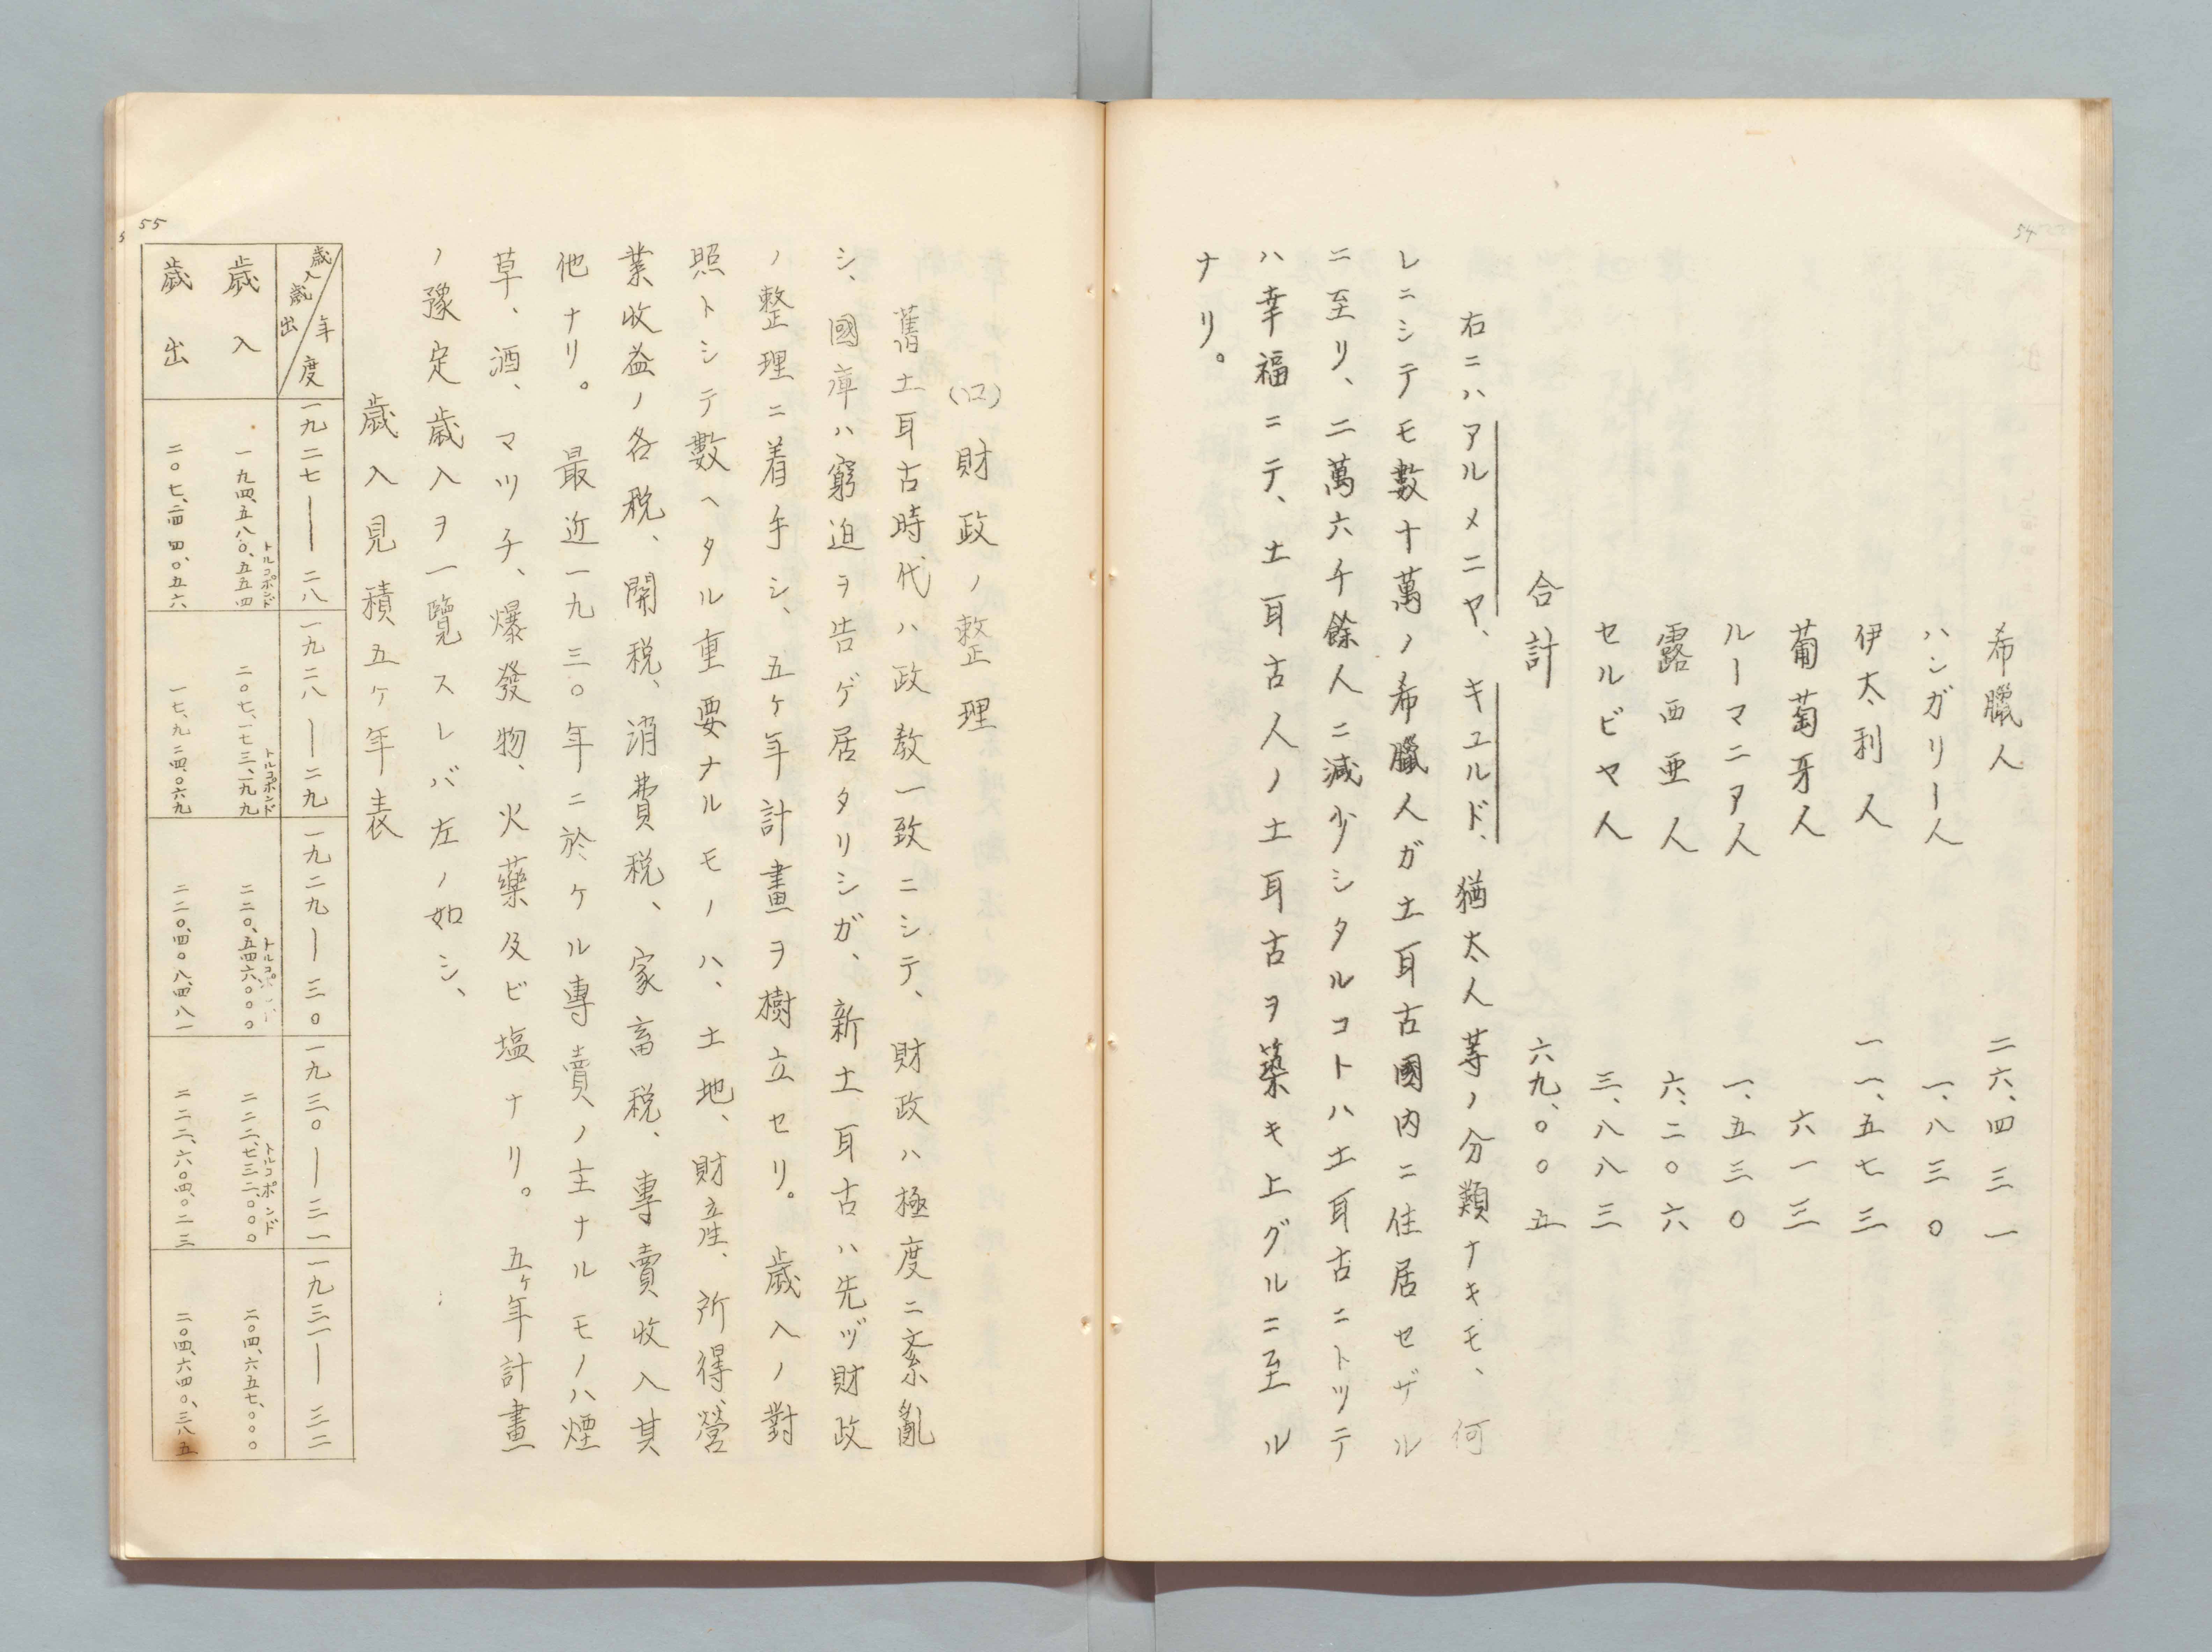 54
希臘人 二六、四三一
ハンガリー人 一、八三〇
伊太利人 一一、五七三
葡萄牙人 六一三
ルーマニア人 一、五三〇
露西亜人 六、二〇六
セルビヤ人 三、八八三
合計 六九、〇〇五
右ニハアルメニヤ、キュルド、猶太人等ノ分類ナキモ、何
レニシテモ數十萬ノ希臘人ガ土耳古國内ニ住居セザル
ニ至リ、二萬六千餘人ニ減少シタルコトハ土耳古ニトツテ
ハ幸福ニテ、土耳古人ノ土耳古ヲ築キ上グルニ至ル
ナリ。
(ロ)財政ノ整理
舊土耳古時代ハ政教一致ニシテ、財政ハ極度ニ紊亂
シ、國庫ハ窮迫ヲ告ゲ居タリシガ、新土耳古ハ先ヅ財政
ノ整理ニ着手シ、五ヶ年計畫ヲ樹立セリ。歳入ノ對
照トシテ數ヘタル重要ナルモノハ、土地、財産、所得、營
業收益ノ各税、関税、消費税、家畜税、専賣收入其
他ナリ。最近一九三〇年ニ於ケル専賣ノ主ナルモノハ煙
草、酒、マツチ、爆發物、火藥及ビ塩ナリ。五ヶ年計畫
ノ豫定歳入ヲ一覽スレバ左ノ如シ、
歳入見積五ヶ年表
歳入歳出 年度 一九二七—二八 一九二八—二九 一九二九—三〇 一九三〇—三一 一九三一—三二
歳入 一九四、五八〇、五五四トルコポンド 二〇七、一七三、一九九トルコポンド 二二〇、五四六、〇〇〇トルコポンド 二二二、七三二、〇〇〇トルコポンド 二〇四、六五七、〇〇〇
歳出 二〇七、二四四〇、五六 一七、九二四、〇六九 二二〇、四〇八、四八一 二二二、六〇四、〇二三 二〇四、六四〇、三八五
55